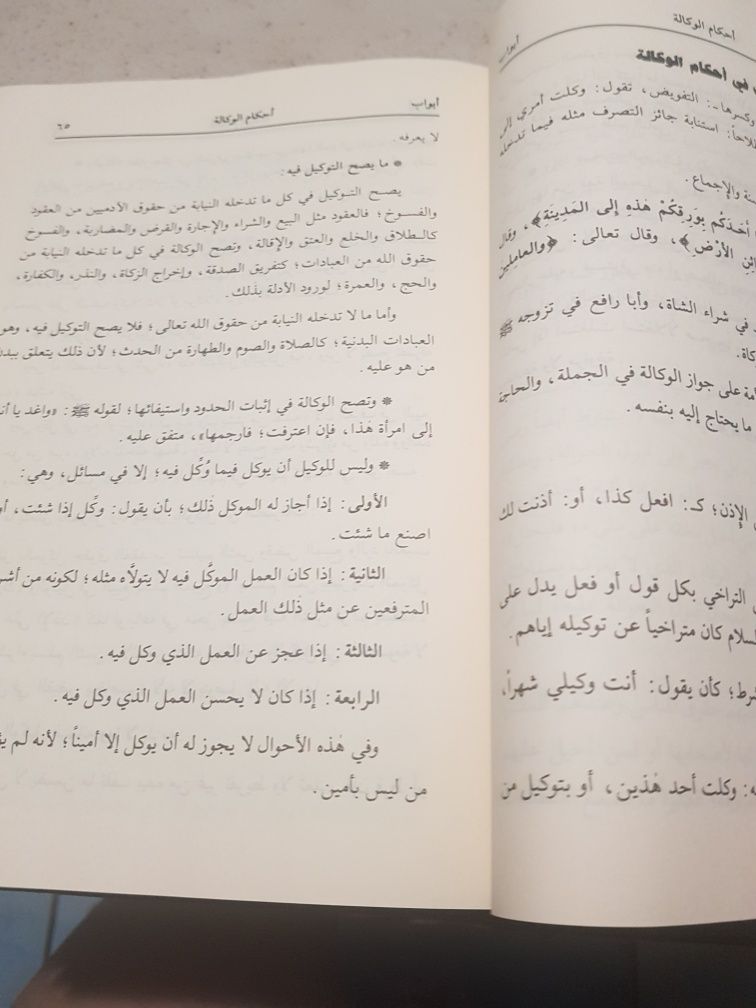 أحكام الوكالة
أبواب
في أحكام الوكالة
وكسرها ـ: التفويض، تقول: وكلت أمري إلى
استنابة جائز التصرف مثله فيما تدخله
والإجماع.
أَحَدَكُم بِوَرِقِكُمْ هَذِهِ إِلَى المَدِينَةِ﴾، وقال
الأَرْضِ﴾، وقال تعالى: ﴿والعامِلِينَ
في شراء الشاة، وأبا رافع في تزوجه ﷺ
على جواز الوكالة في الجملة، والحاجة
ما يحتاج إليه بنفسه.
الإذن؛ كـ: افعل كذا، أو: أذنت لك
التراخي بكل قول أو فعل يدل على
كان متراخياً عن توكيله إياهم.
كأن يقول: أنت وكيلي شهراً،
وكلت أحد هٰذين، أو بتوكيل من
أبواب
أحكام الوكالة
٦٥
لا يعرفه.
* ما يصح التوكيل فيه:
يصح التوكيل في كل ما تدخله النيابة من حقوق الآدميين من العقود
والفسوخ؛ فالعقود مثل البيع والشراء والإجارة والقرض والمضاربة، والفسوخ
كالطلاق والخلع والعتق والإقالة، وتصح الوكالة في كل ما تدخله النيابة من
حقوق الله من العبادات؛ كتفريق الصدقة، وإخراج الزكاة، والنذر، والكفارة،
والحج، والعمرة؛ لورود الأدلة بذلك.
وأما ما لا تدخله النيابة من حقوق الله تعالى؛ فلا يصح التوكيل فيه، وهو
العبادات البدنية؛ كالصلاة والصوم والطهارة من الحدث؛ لأن ذلك يتعلق
من هو عليه.
* وتصح الوكالة في إثبات الحدود واستيفائها؛ لقوله ﷺ: «واغد يا
إلى امرأة هٰذا، فإن اعترفت؛ فارجمها»، متفق عليه.
* وليس للوكيل أن يوكل فيما وُكِّل فيه؛ إلا في مسائل، وهي:
الأولى: إذا أجاز له الموكل ذٰلك؛ بأن يقول: وكِّل إذا شئت،
اصنع ما شئت.
الثانية: إذا كان العمل الموكَّل فيه لا يتولاَّه مثله؛ لكونه من
المترفعين عن مثل ذٰلك العمل.
الثالثة: إذا عجز عن العمل الذي وكل فيه.
الرابعة: إذا كان لا يحسن العمل الذي وكل فيه.
وفي هٰذه الأحوال لا يجوز له أن يوكل إلا أميناً؛ لأنه لم
من ليس بأمين.